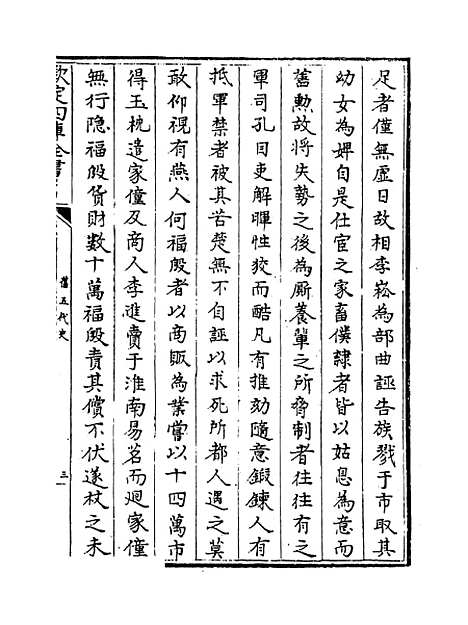 足者僅無虚日故相李崧為部曲誣告族戮于市取其
幼女為婢自是仕宦之家畜僕隷者皆以姑息為意而
舊勲故將失勢之後為厮養輩之所脅制者往往有之
軍司孔目吏解暉性狡而酷凡有推劾隨意鍛鍊人有
抵軍禁者被其苦楚無不自誣以求死所都人遇之莫
敢仰視有燕人何福殷者以商販為業嘗以十四萬市
得玉枕遣家僮及商人李進賣于淮南易茗而廻家僮
無行隐福殷貨財數十萬福殷責其償不伏遂杖之未
欽定四庫全書
舊五代史